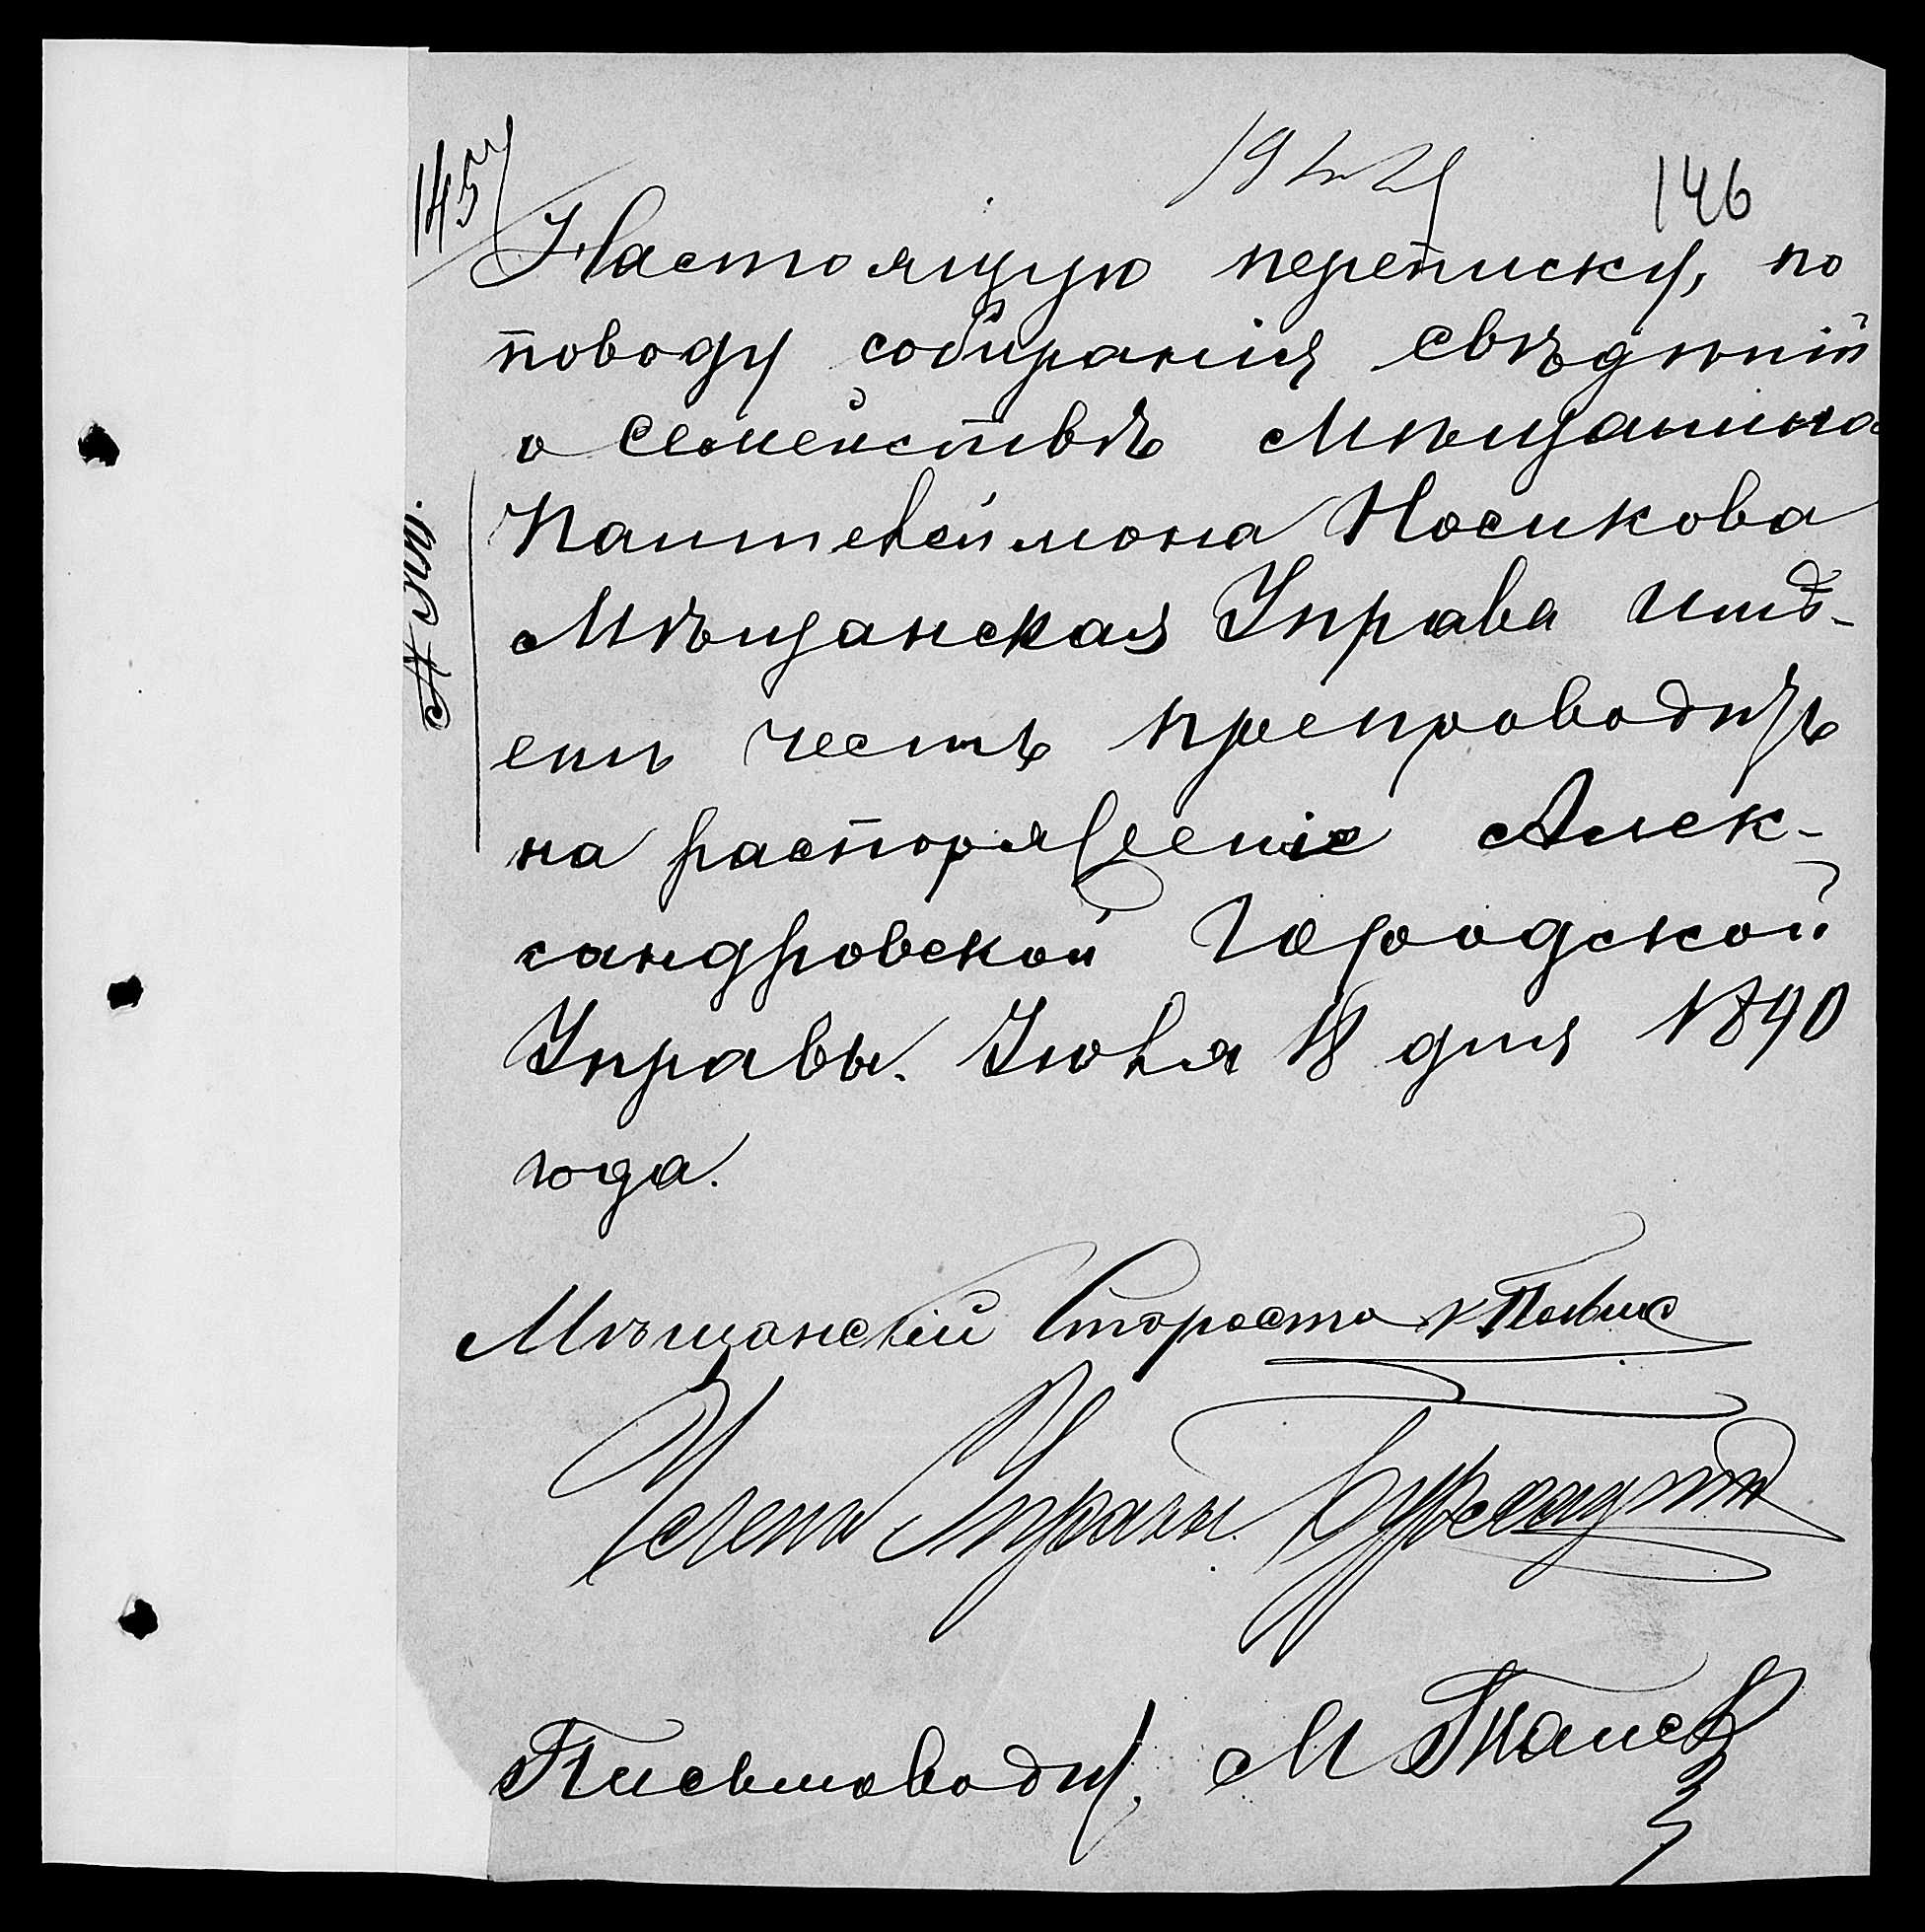 145
146
Настоящую переписку, по
поводу собиранія свѣдѣній
о Семействѣ Мѣщанина
Пантелеймона Носикова
Мѣщанская Управа имѣ-
етъ честь препроводить
на распоряженіе Алек-
сандровской Городской
Управы. Іюля 18 дня 1890
года.
Мѣщанскій Староста
Членъ Управы
Письмоводит. М